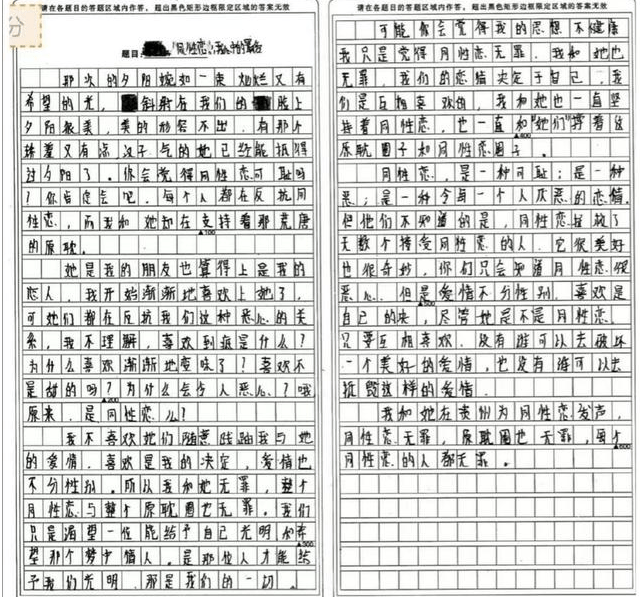 请在各题目的答题区域内作答，超出黑色矩形边框限定区域的答案无效
分
题目：同性恋，我
那次的夕阳宛如一束灿烂又有
希望的光，斜射在我们的脸上
夕阳很美，美的形容不出，有那个
又有点汉子气的她已经能抵得
过夕阳了。你会觉得同性恋可耻吗
？你肯定会吧，每个人都在反抗同
性恋，而我和她却在支持着那荒唐
▲100
的原耽。
她是我的朋友也算得上是我的
恋人，我开始渐渐地喜欢上她了，
可她们都在反抗我们这种恶心的关
系，我不理解，喜欢到底是什么？
为什么喜欢渐渐地变味了？喜欢不
是甜的吗？为什么会令人恶心？哦
▲200
原来，是同性恋么？
我不喜欢她们随意歧我与她
的爱情，喜欢是我的决定，爱情也
不分性别。所以我和她无罪，整个
同性恋与整个原耽圈也无罪。我们
只是渴望一位能给予自己光明和希
▲300
望那个梦中情人。是那位人才能给
予我们光明，那是我们的一切。
请在各题目的答题区域内作答，超出黑色矩形边框限定区域的答案无效
可能你会觉得我的思想不健康
我只是觉得同性恋无罪，我和她也
无罪，我们的恋情决定于自己，我
们是互相喜欢的，我和她也一直坚
持着同性恋，也一直和她们守着这
▲400
原耽圈子和同性恋圈子。
同性恋，是一种可耻；是一种
恶；是一种令每一个人厌恶的恋情。
但他们不知道的是，同性恋拯救了
无数个接受同性恋的人，它很美好
也很奇妙，你们只会知道同性恋很
恶心，但是爱情不分性别，喜欢是
▲500
自己的决，尽管她是不是同性恋。
只要互相喜欢，没有谁可以去破坏
一个美好的爱情，也没有谁可以去
诋毁这样的爱情。
我和她在为同性恋发声，
同性恋无罪，原耽圈也无罪，每个
▲600
同性恋的人都无罪。